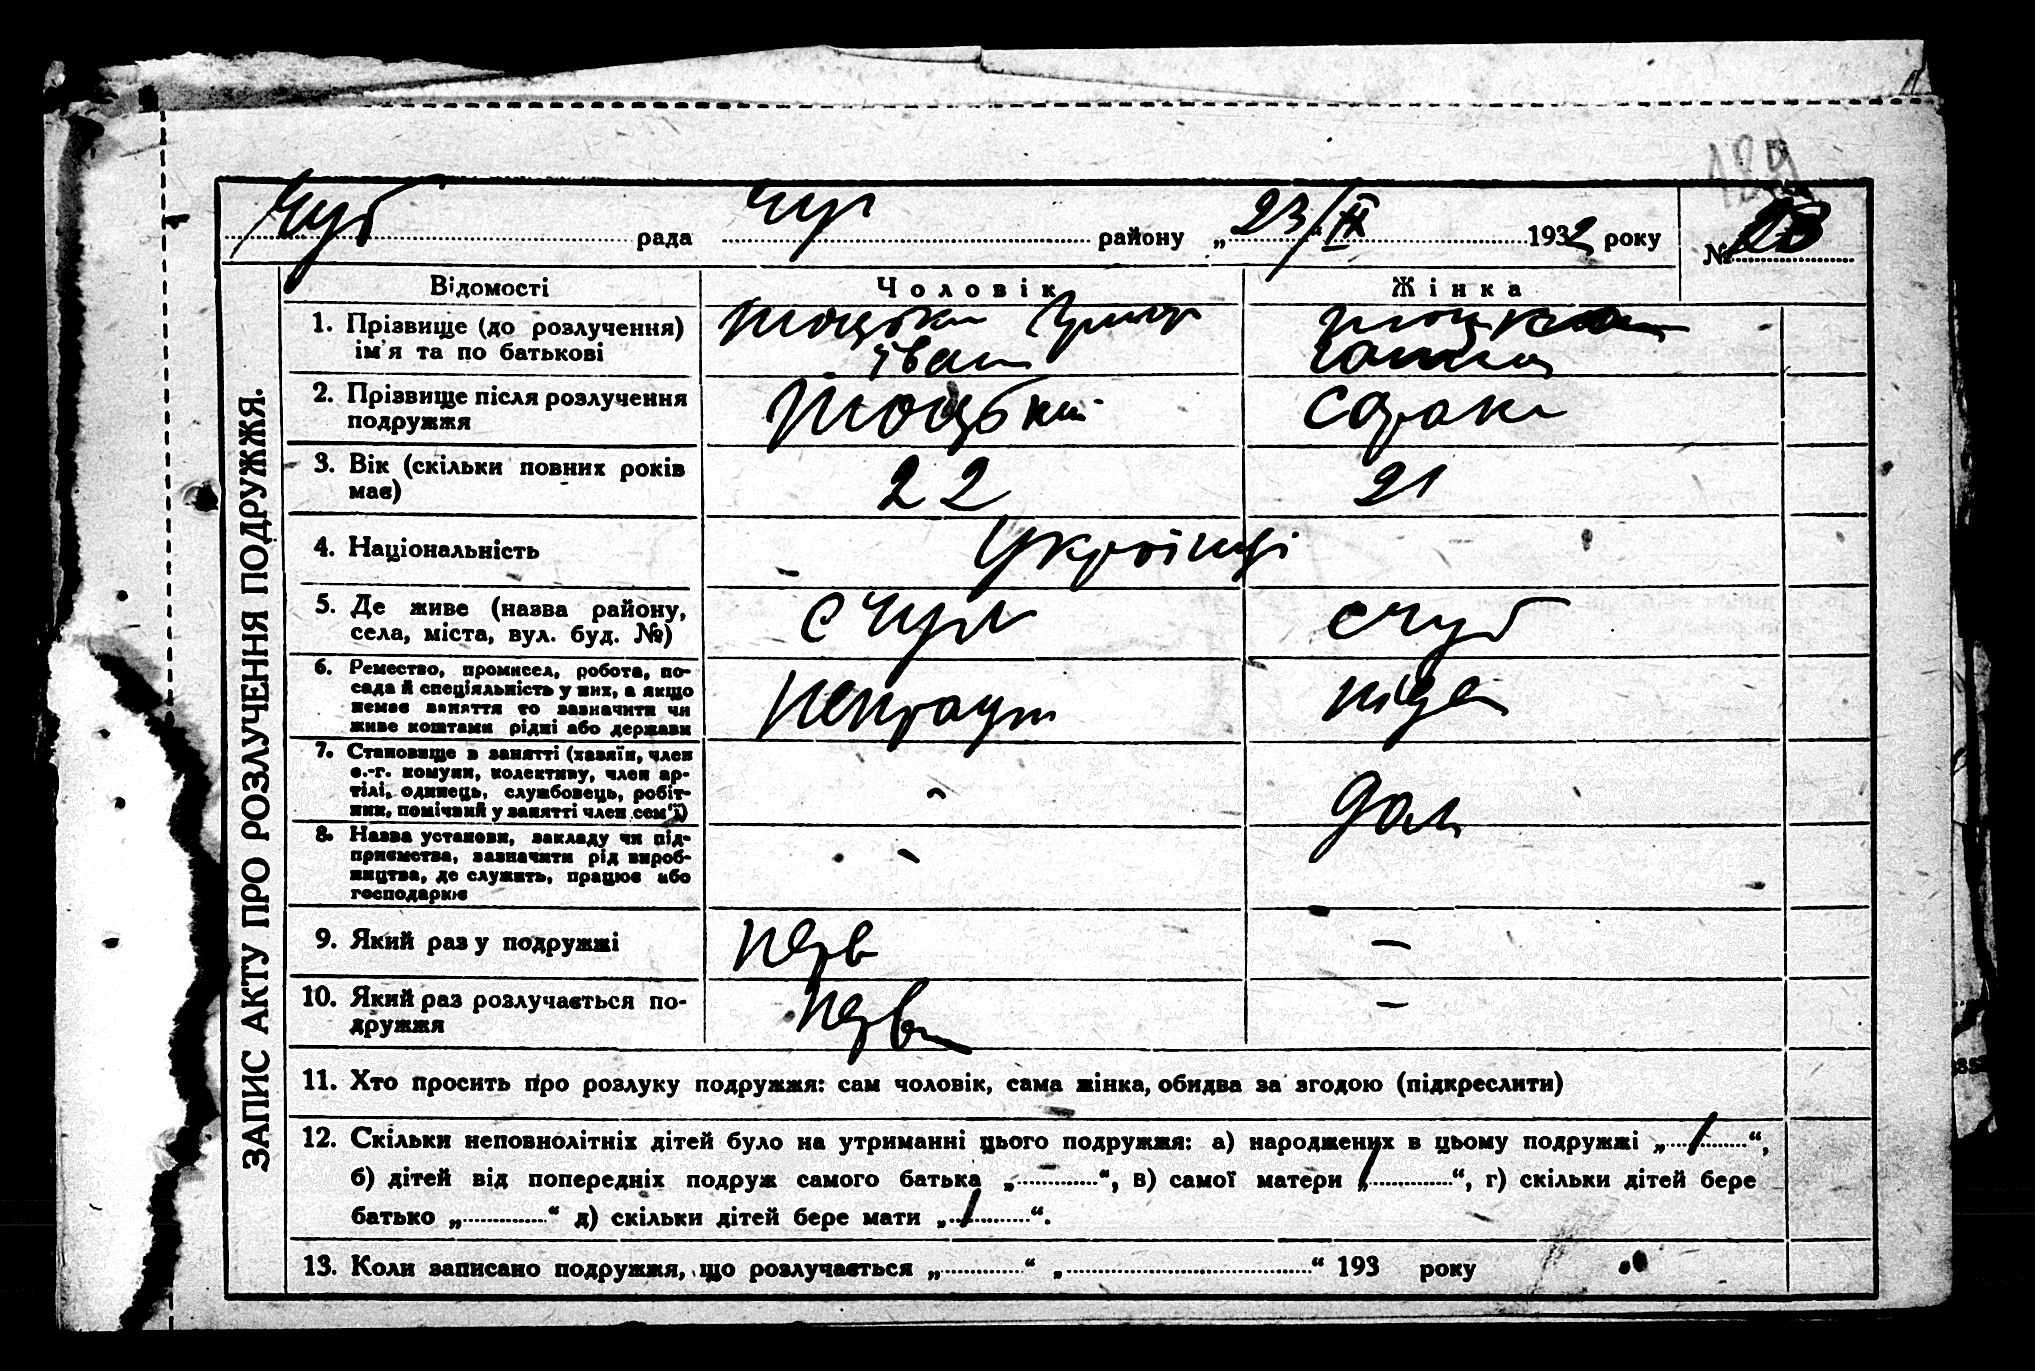 189
Чуб рада Чуг району „23/IX 1932 року № 23
ЗАПИС АКТУ ПРО РОЗЛУЧЕННЯ ПОДРУЖЖЯ.
Відомості Чоловік Жінка
1. Прізвище (до розлучення)
ім'я та по батькові
Іван
2. Прізвище після розлучення
подружжя
Тоцький
3. Вік (скільки повних років
має)
22 21
4. Національність
Українці
5. Де живе (назва району,
села, міста, вул. буд. №)
с Чуб
6. Ремество, промисел, робота, по-
сада й спеціяльність у них, а якщо
немає заняття то зазначити чи
живе коштами рідні або держави
7. Становище в занятті (хазяїн, член
с.-г. комуни, колективу, член ар-
тілі, одинець, службовець, робіт-
ник, помічний у занятті член сем'ї)
8. Назва установи, закладу чи під-
приємства, зазначити рід вироб-
ництва, де служить, працює або
господарює
9. Який раз у подружжі
перв –
10. Який раз розлучається по-
дружжя
перв –
11. Хто просить про розлуку подружжя: сам чоловік, сама жінка, обидва за згодою (підкреслити)
12. Скільки неповнолітніх дітей було на утриманні цього подружжя: а) народжених в цьому подружжі „ 1 “,
б) дітей від попередніх подруж самого батька „ “, в) самої матери „ “, г) скільки дітей бере
батько „ “ д) скільки дітей бере мати „ 1 “.
13. Коли записано подружжя, що розлучається „ “ „ “ 193 року